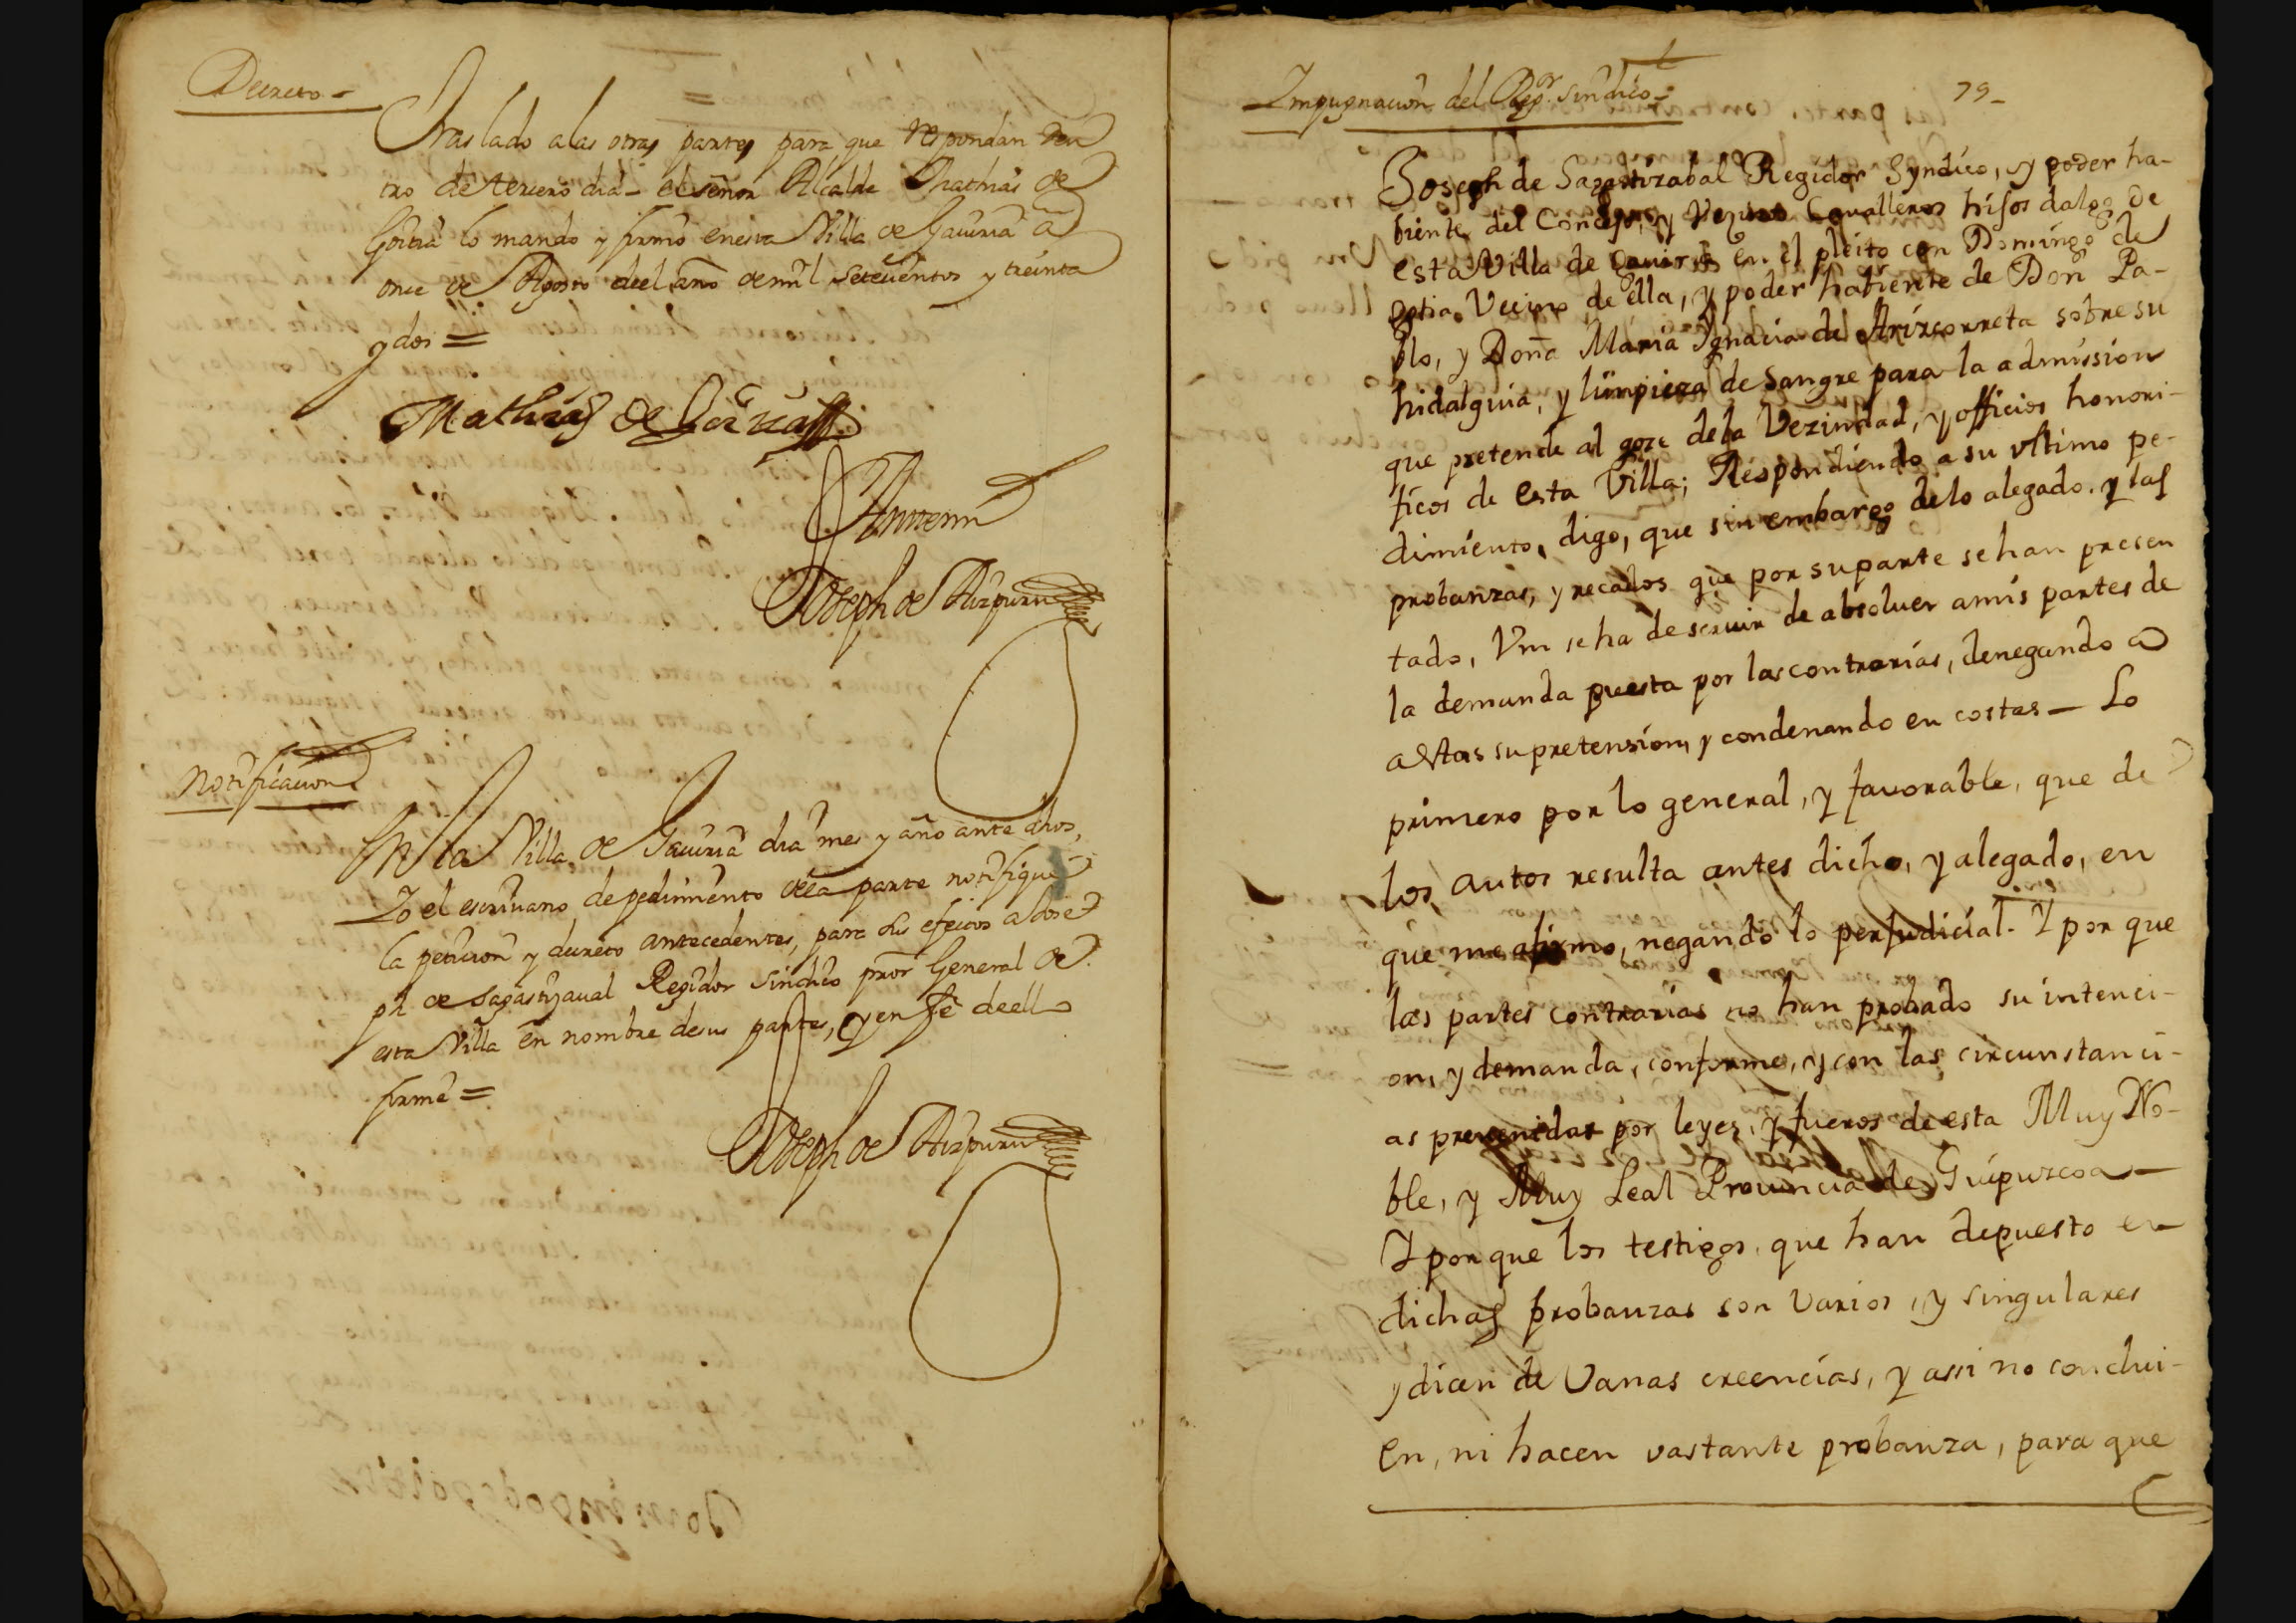 Decreto -
Traslado a las otras partes para que respondan den
tro de tercero dia - el señor Alcalde Mathias de
Goitia lo mando y firmo en esta Villa de Gauiria a
once de Agosto de el año de mil setecientos y treinta
y dos =
Mathias de Goitia
Ante mi
Joseph de Aizpuru
Notificacion
En la Villa de Gauiria dia mes y año ante dhos,
Yo el escriuano de pedimento de la parte notifique
la peticion y decreto antecedentes, para sus efectos a Jose
ph de Sagastizaual Regidor Sindico pror General de
esta Villa en nombre de sus partes, y en fe de ello
firmé =
Joseph de Aizpuru
Impugnacion del Regr. sindico -
79 -
Joseph de Sagastizabal Regidor Syndico, y poder ha-
biente del Concejo, y Vezinos Cavalleros hijos dalgo de
esta Villa de Gauiria en el pleito con Domingo de
Goitia Vecino de ella, y poder habiente de Don Pa-
blo, y Doña Maria Ygnacia de Arizcorreta sobre su
hidalguia, y limpieza de Sangre para la admission
que pretende al goze de la Vezindad, y officios honori-
ficos de esta Villa; Respondiendo a su vltimo pe-
dimiento, digo, que sin embargo de lo alegado, y las
probanzas, y recados que por su parte se han presen
tado, Vm se ha de seruir de absoluer a mis partes de
la demanda puesta por las contrarias, denegando a
estas su pretension, y condenando en costas — Lo
primero por lo general, y favorable, que de
los autos resulta antes dicho, y alegado, en
que me afirmo, negando lo perjudicial. Y por que
las partes contrarias no han probado su intenci-
on, y demanda, conforme, y con las circunstanci-
as prevenidas por leyes, y fueros de esta Muy No-
ble, y Muy Leal Prouincia de Guipuzcoa —
Y porque los testigos, que han depuesto en
dichas probanzas son varios, y singulares
y dicen de Vanas creencias, y assi no conclui-
en, ni hacen vastante probanza, para que